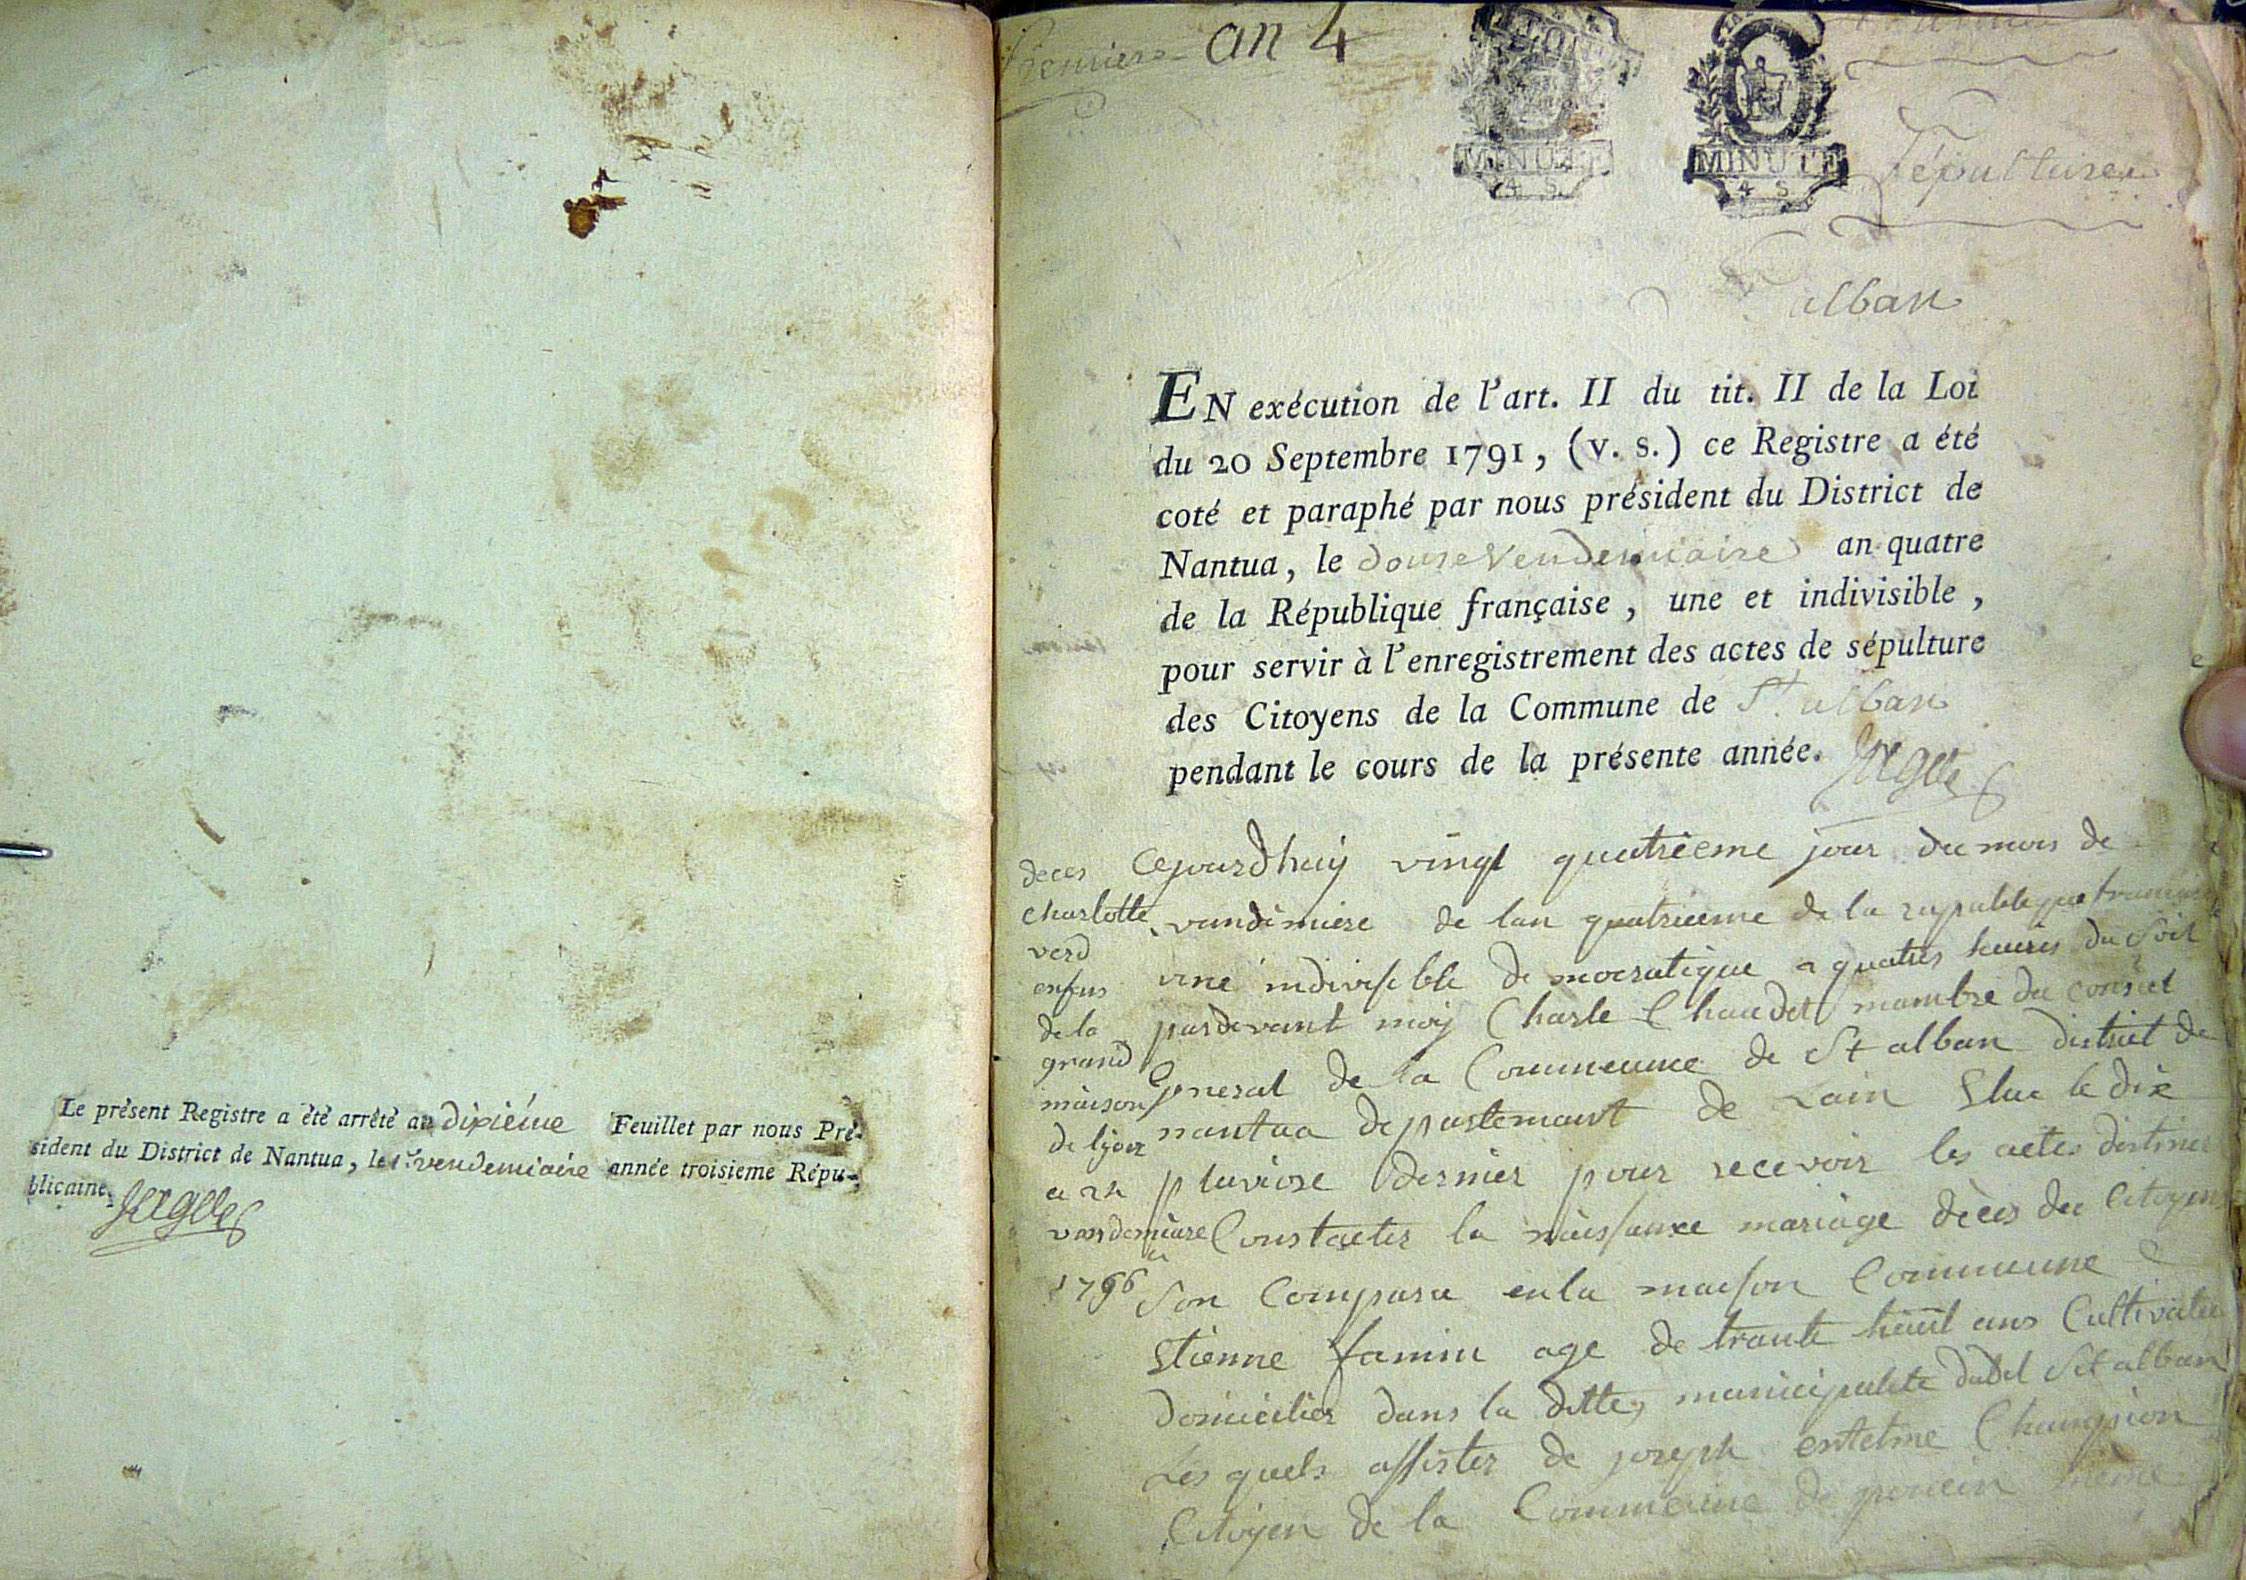 Le présent Registre a été arrêté au dixiéme Feuillet par nous Pré-
sident du District de Nantua, le 1er vendemiaire année troisieme Répu-
blicaine.
an 4
MINUTE
4 S
MINUTE
4 S
Sépultures
alban
EN exécution de l'art. II du tit. II de la Loi
du 20 Septembre 1791, (v. s.) ce Registre a été
coté et paraphé par nous président du District de
Nantua, le douse Vendemiaire an quatre
de la République française, une et indivisible,
pour servir à l'enregistrement des actes de sépulture
des Citoyens de la Commune de St. alban
pendant le cours de la présente année.
deces
charlotte
verd
enfans
de la
grand
maison
de lyon
a 24
vandemiare
a
1796
Cejourdhuy vingt quatrieme jour du mois de
vandimiere de lan quatrieme de la republique francaise
une indivisible democratique a quatres heures du soir
pardevant moy Charle Chaudet mambre du conseil
general de la Commeune de St alban district de
nantua departemant de Lain Elue le dix
pluviose dernier pour recevoir les actes destines
Constater la naissance mariage dèces des Citoyens
Son Comparu en la maison Commeune E
stienne famin age de trante huit ans Cultivateur
domicilier dans la ditte municipalite dudit St alban
Les quels assister de joseph entelme Champion
Citoyen de la Commeune de poncin même